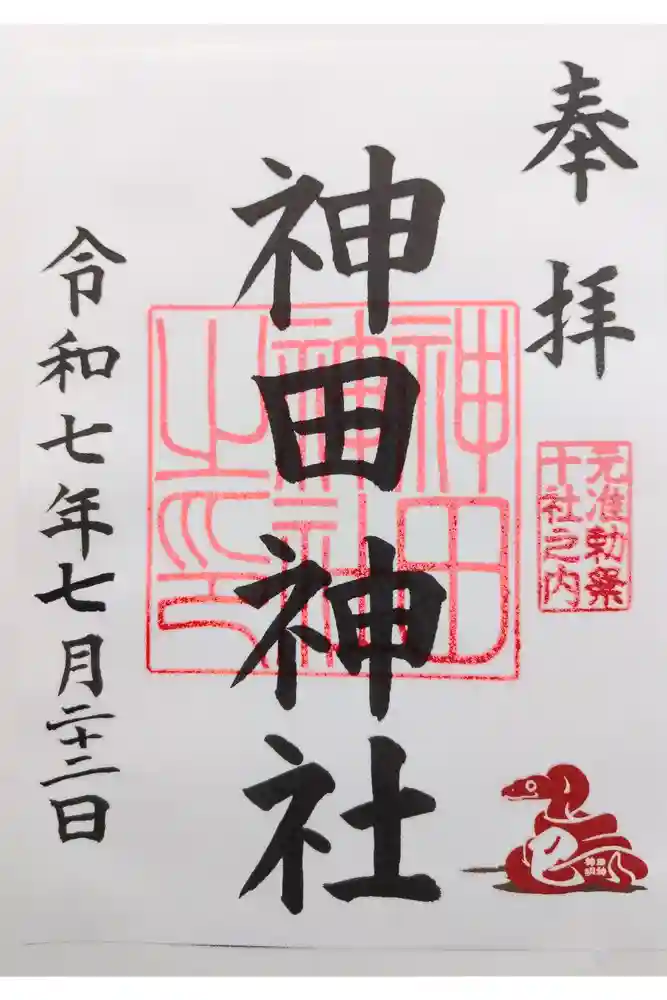 奉拝
元准勅祭
十社之内
神田神社
神田
神社
之印
巳
令和七年七月二十二日